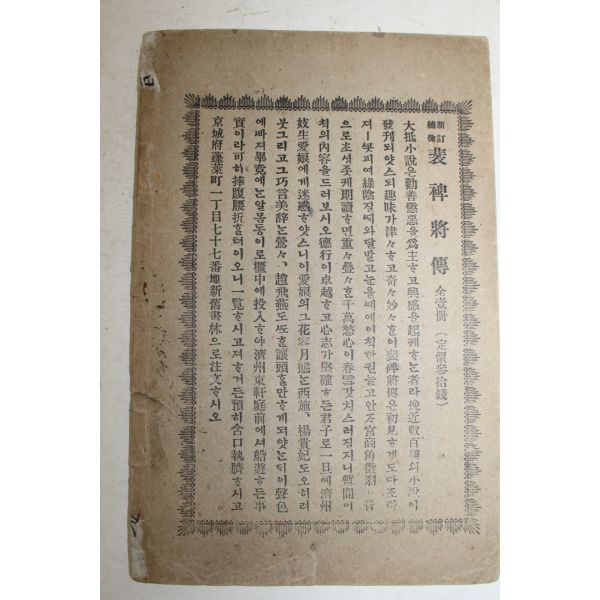 新訂繡像 裴裨將傳 全壹冊 (定價參拾錢)
大抵小說은勸善懲惡을爲主ᄒᆞ고興感을起케ᄒᆞᄂᆞᆫ者라挽近數百種의小說이
發刊되얏스되趣味가津々ᄒᆞ고奇々妙々ᄒᆞᆷ이裴裨將傳은初見ᄒᆞ겟도다조타
져ㅣ ᄭᅩᆺ피여綠陰진ᄯᅢ와달발고눈올때에이ᄎᆡᆨ한권들고안ᄌᆞ宮商角徵羽ㅣ音
으로초셩조케朗讀ᄒᆞ면重々疊々ᄒᆞᆫ千萬愁心이春雪갓치스러질지니暫間이
ᄎᆡᆨ의內容을드러보시오德行이卓越ᄒᆞ고心志가堅確ᄒᆞ든君子로一旦에濟州
妓生愛娘에게迷惑ᄒᆞ얏스니이愛娘의그花容月態ᄂᆞᆫ西施、楊貴妃도오히려
붓그리고그巧言美辞ᄂᆞᆫ鶯々、趙飛燕도ᄯᅩᄒᆞᆫ讓頭ᄒᆞᆯ만ᄒᆞ게되얏ᄂᆞᆫᄃᆡ이聲色
에ᄲᅡ져畢竟에ᄂᆞᆫ알몸동이로櫃中에投入ᄒᆞ야濟州東軒庭前에셔船遊ᄒᆞ든事
實이라可히捧腹腰折ᄒᆞᆯ터이오니一覽ᄒᆞ시고져ᄒᆞ거든預히含口執臍ᄒᆞ시고
京城府蓬萊町一丁目七十七番地新舊書林으로注文ᄒᆞ시오